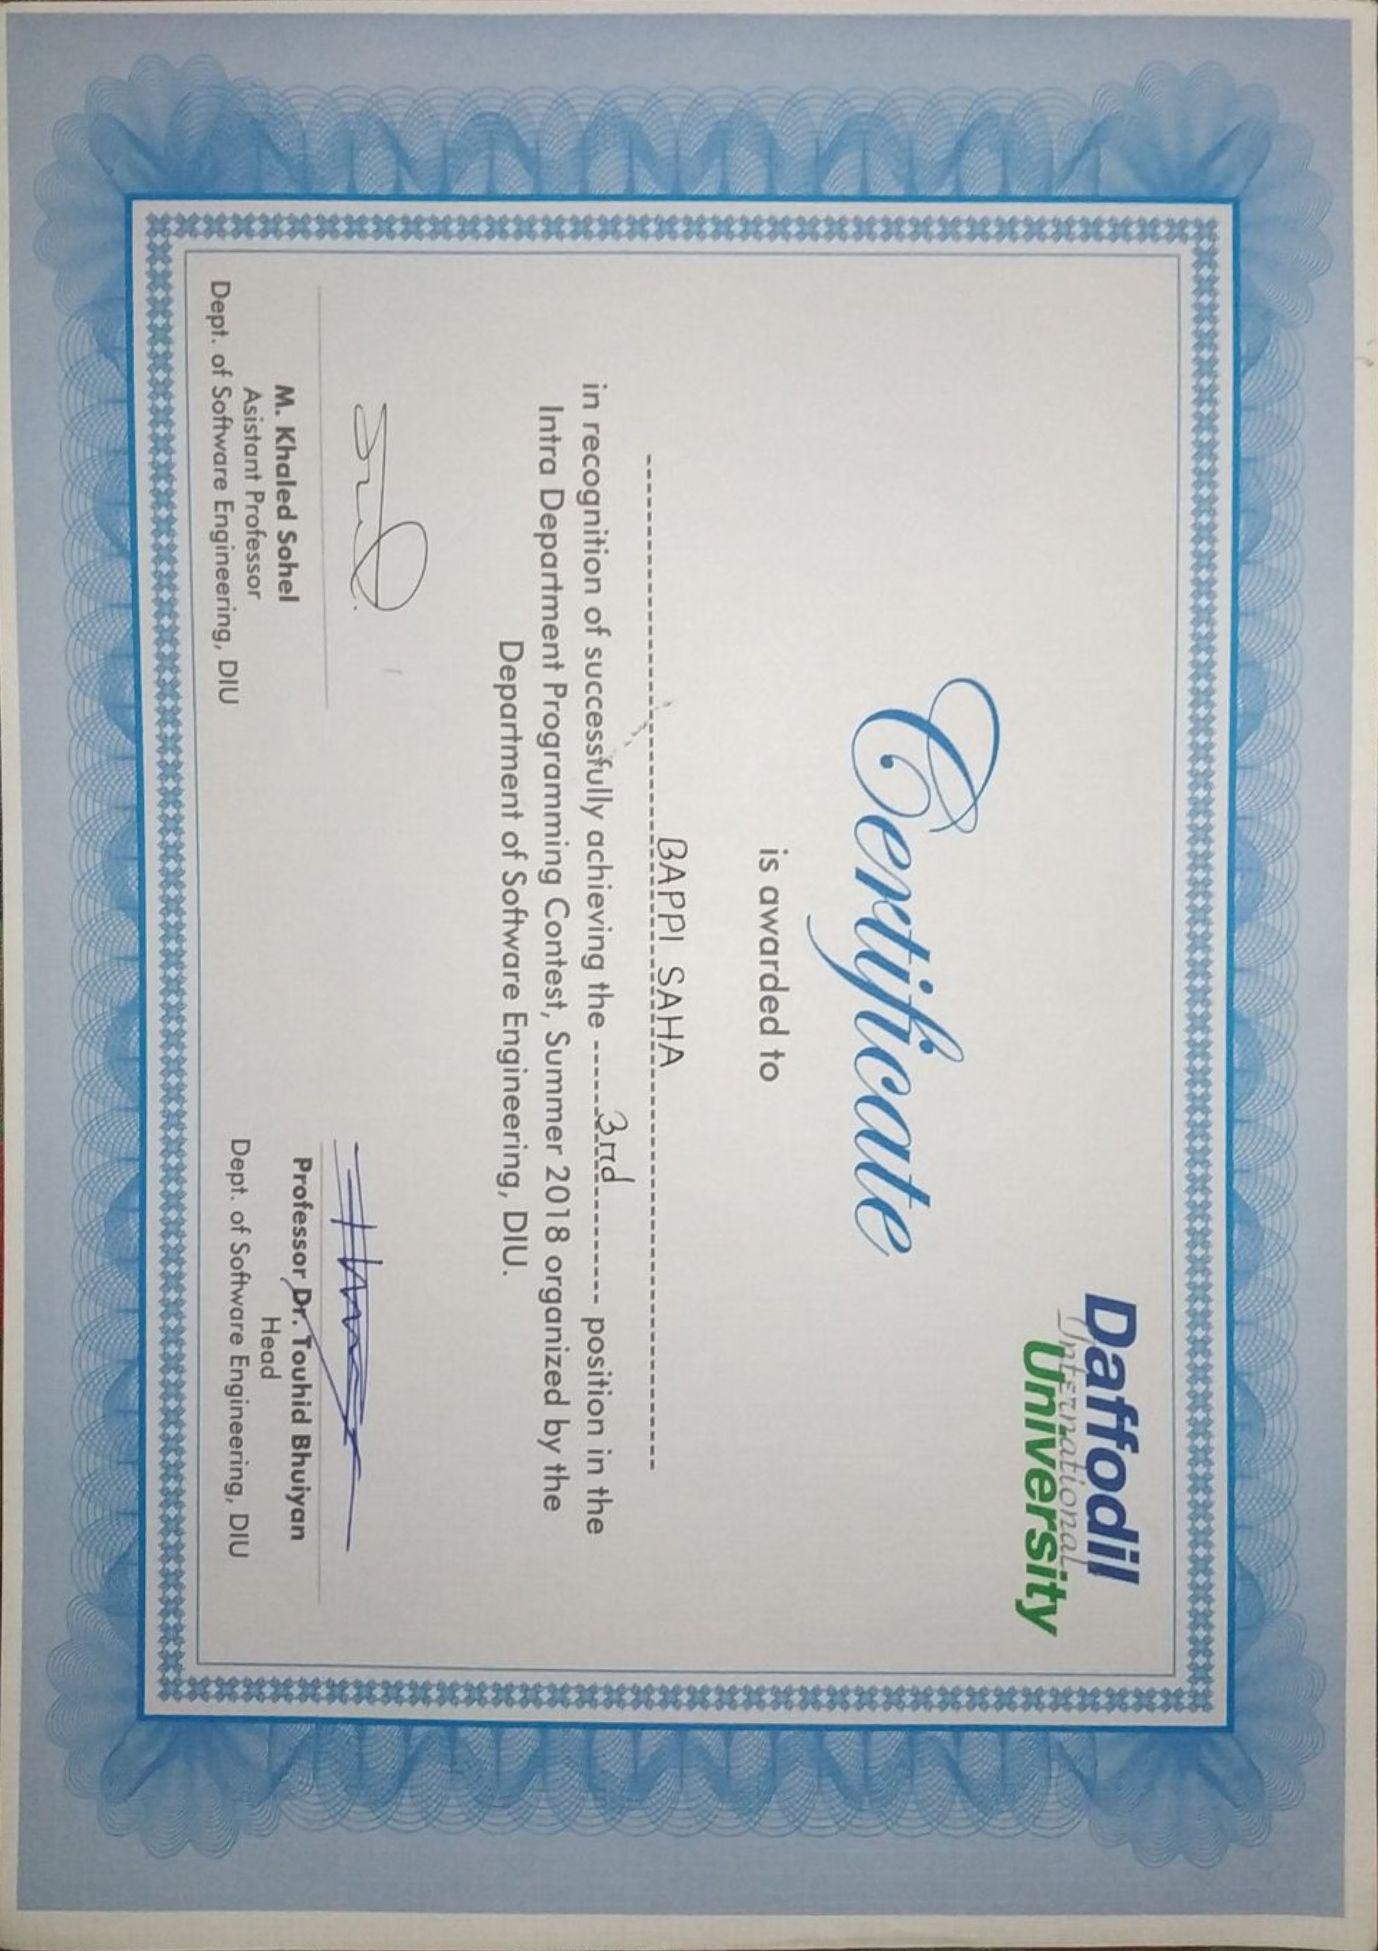 Daffodil
International
University
Certificate
is awarded to
BAPPI SAHA
in recognition of successfully achieving the 3rd position in the
Intra Department Programming Contest, Summer 2018 organized by the
Department of Software Engineering, DIU.
M. Khaled Sohel
Asistant Professor
Dept. of Software Engineering, DIU
Professor Dr. Touhid Bhuiyan
Head
Dept. of Software Engineering, DIU